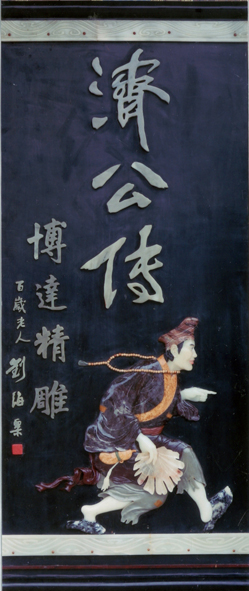 濟公传
博達精雕
百歲老人 劉海粟